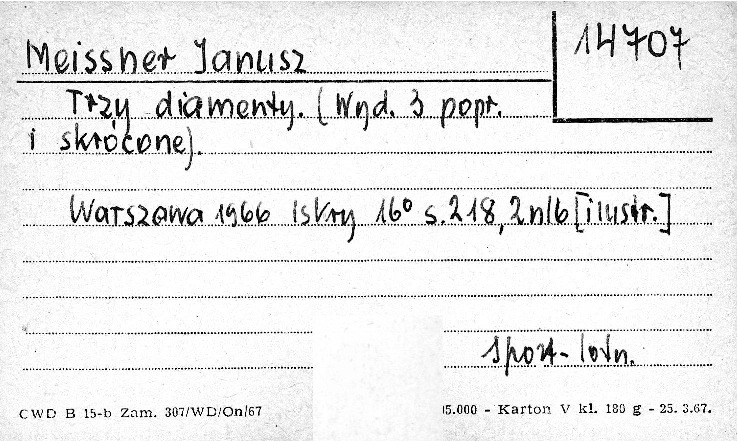 14707
Meissner Janusz
Trzy diamenty. (Wyd. 3 popr.
i skrócone).
Warszawa 1966 Iskry 16° s.218, 2nlb [ilustr.]
sport-lotn.
CWD B 15-b Zam. 307/WD/On/67
15.000 - Karton V kl. 180 g - 25. 3.67.